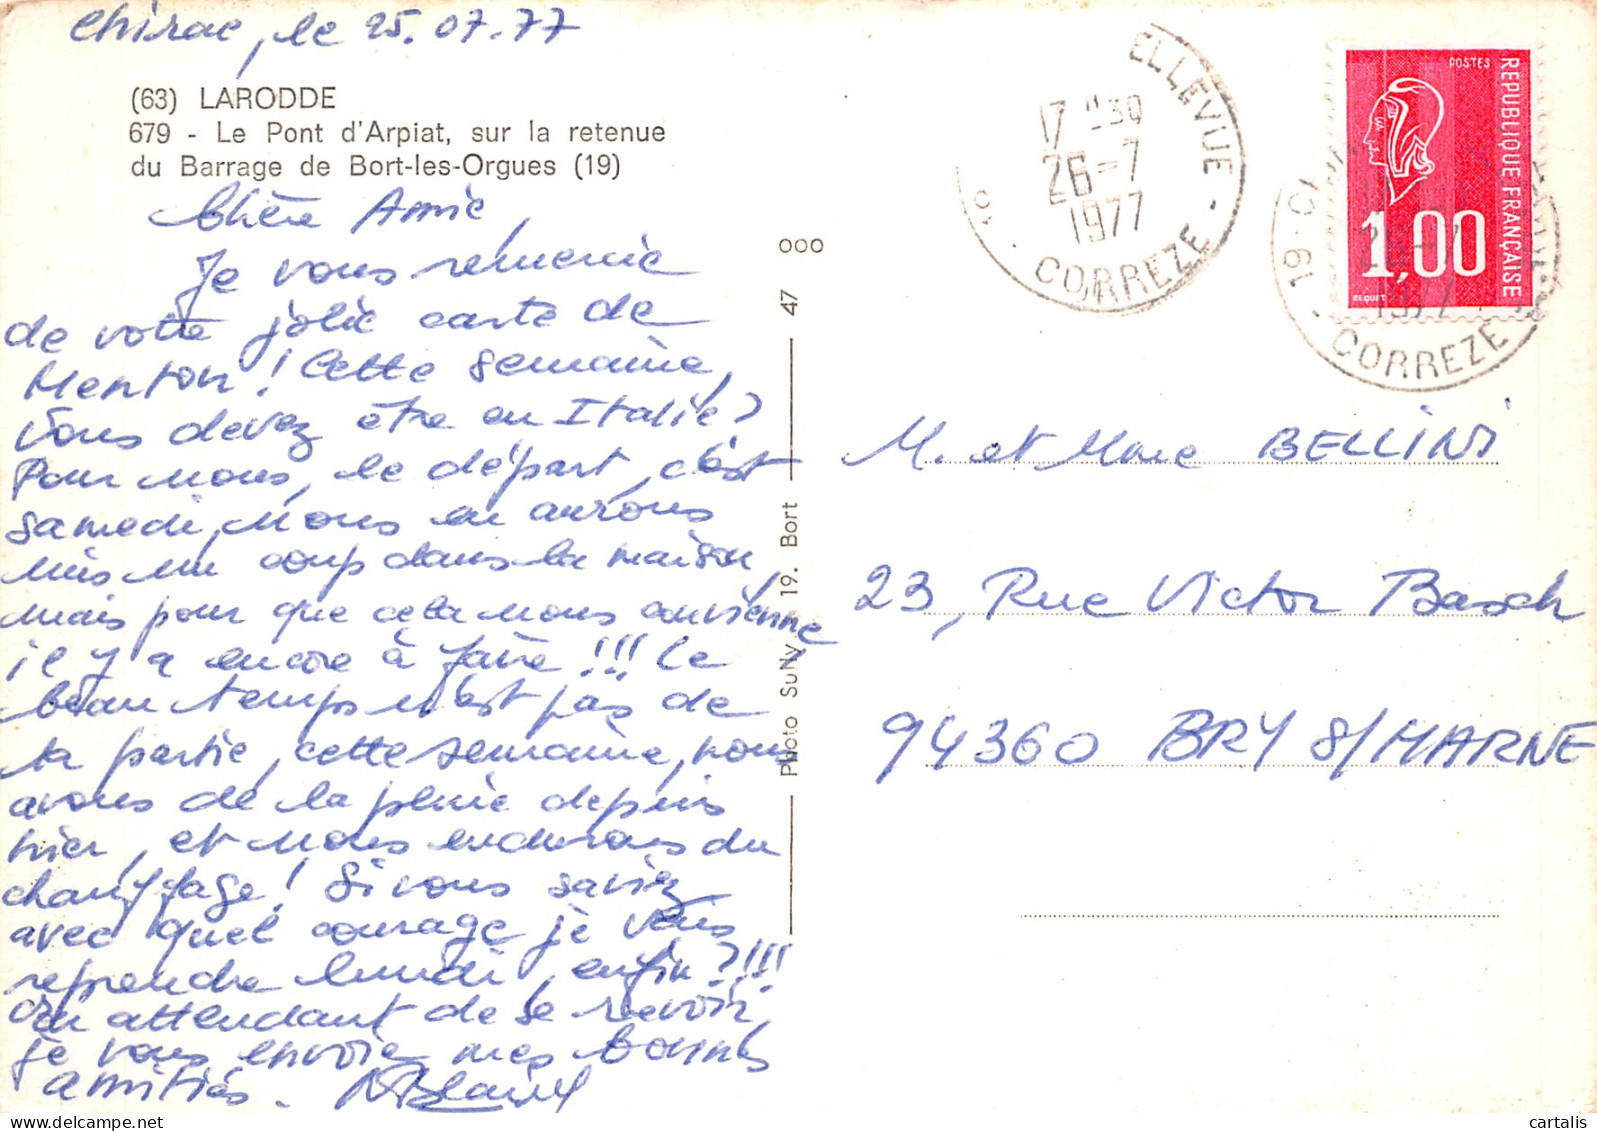 Chirac, le 25.07.77
(63) LARODDE
679 - Le Pont d'Arpiat, sur la retenue
du Barrage de Bort-les-Orgues (19)
Chère Amie,
Je vous remercie
de votre jolie carte de
Menton! Cette semaine,
vous devez être en Italie?
Pour nous, le départ, c'est
samedi, nous en aurons
mis un coup dans la maison,
mais pour que cela nous convienne
il y a encore à faire!!! Le
beau temps n'est pas de
la partie, cette semaine, nous
avons de la pluie depuis
hier, et nous endurons du
chauffage! Si vous saviez
avec quel courage je vais
reprendre lundi, enfin?!!!
En attendant de se revoir,
je vous envoie mes bonnes
amitiés.
000
47
Photo Sully 19. Bort
ELLEVUE
17 H30
26-7
1977
CORREZE
POSTES
REPUBLIQUE FRANÇAISE
1,00
BEQUET
19
1977
CORREZE
M. et Mme BELLINI
23, Rue Victor Basch
94360 BRY S/MARNE
cartalis
delcampe.net